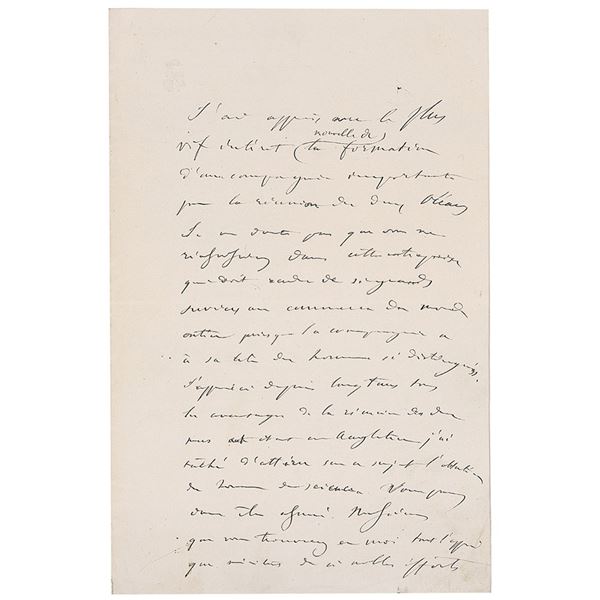 J'ai appris avec le plus
nouvelle de
vif intérêt (la formation
d'une compagnie importante
pour la réunion des deux Océans
Je ne doute pas que vous ne
réussissiez dans cette entreprise
qui doit rendre de si grands
services au commerce du monde
entier puisque la compagnie a
à sa tête des hommes si distingués.
J'apprécie depuis longtems tous
les avantages de la réunion des deux
mers et étant en Angleterre j'ai
tâché d'attirer sur ce sujet l'attention
des hommes de science. Vous pouvez
donc être Messieurs
que vous trouverez en moi tout l'appui
que méritent de si nobles efforts